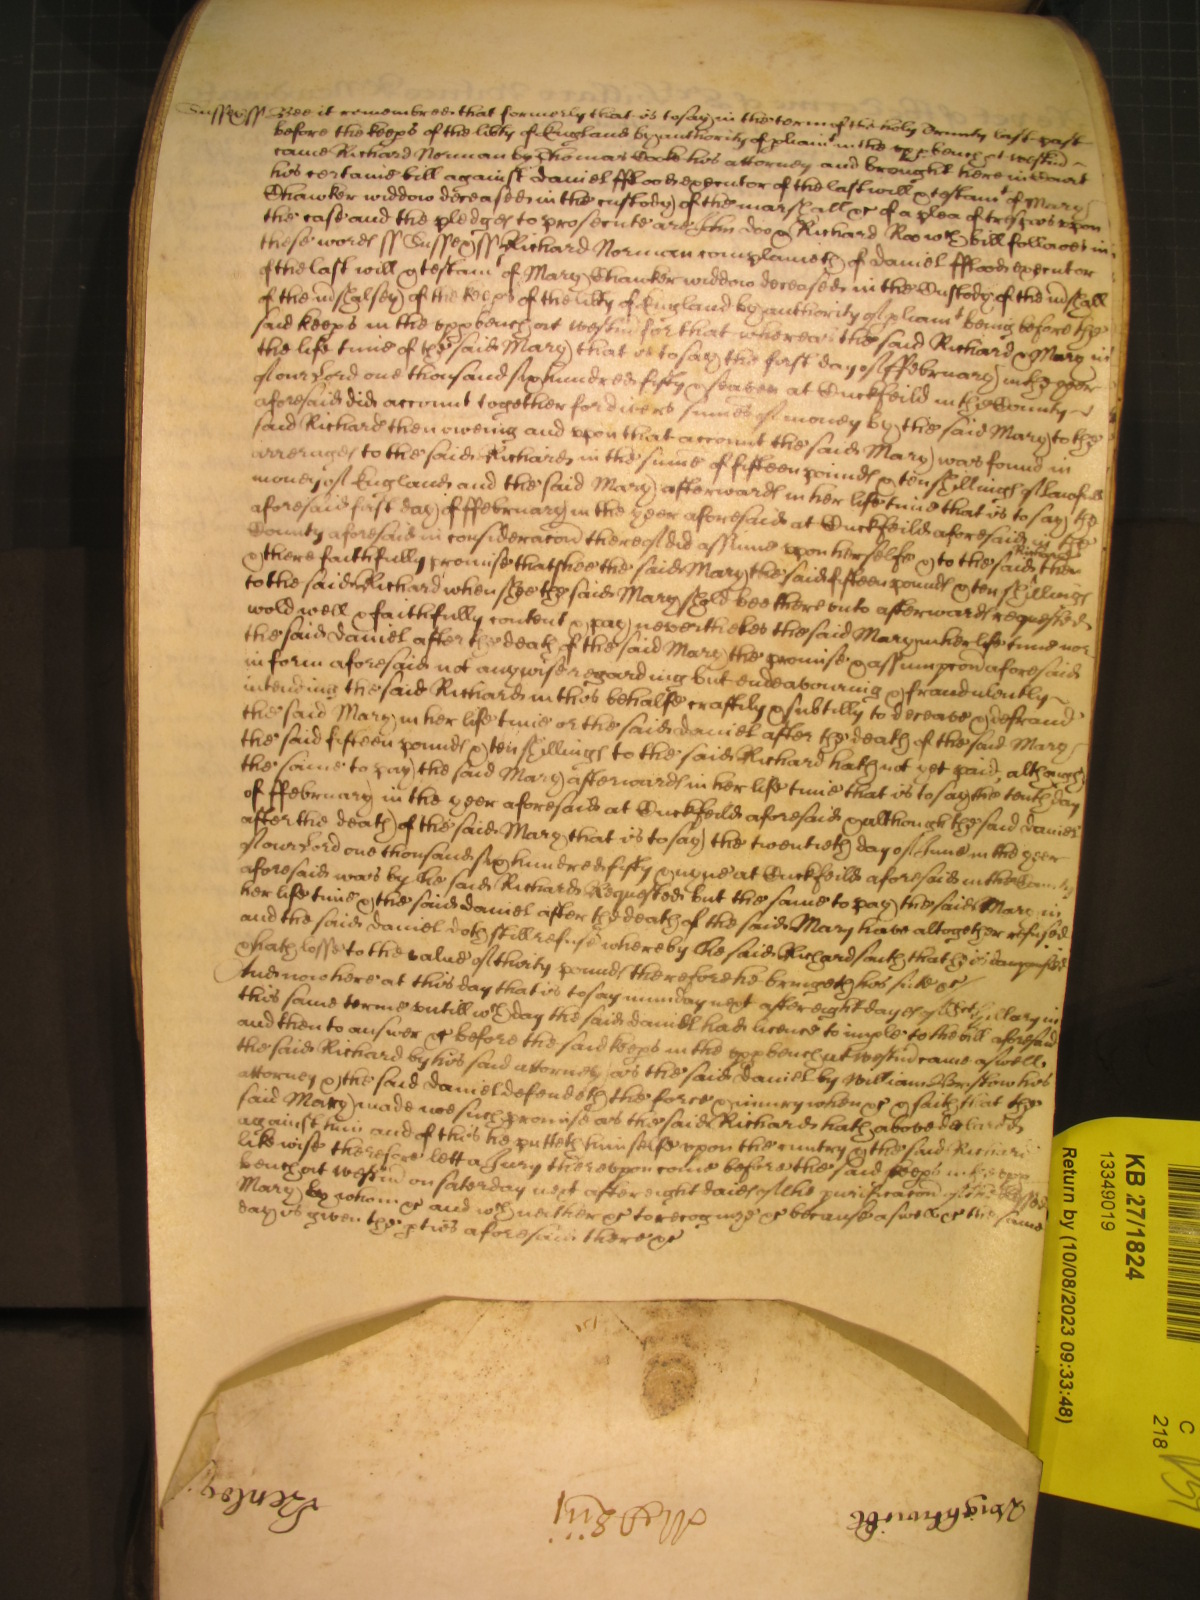 Sussex ss Bee it remembred that formerly that is to say in the terme of the holy Trinity last past
before the keeps of the libty of England by authority of pliam^t in the upp bench at Westm
came Richard Norman by Thomas Cooke his attorney and brought here in Court
his certaine bill against Daniel fflood executor of the last will & testam^t of Mary
Shawker widdow deceased in the custody of the marshall &c of a plea of trespas upon
the case and the pledges to prosecute are John Doo & Richard Roo w^ch bill followes in
these words ss Sussex ss Richard Norman complaineth of Daniel fflood executor
of the last will & testam^t of Mary Shawker widdow deceased in the Custody of the mshall
of the mshalsey of the keeps of the libty of England by authority of pliam^t being before the
said keeps in the upp bench at Westm for that whereas the said Richard & Mary in
the life time of the said Mary that is to say the first day of ffebruary in the yeer
of our Lord one thousand six hundred fifty & seaven at Cuckfeild in the County
aforesaid did account together for divers sumes of money by the said Mary to the
said Richard then oweing and upon that account the said Mary was found in
arrerages to the said Richard in the sume of fifteen pounds & ten shillings of lawfull
money of England and the said Mary afterwards in her life time that is to say the
aforesaid first day of ffebruary in the yeer aforesaid at Cuckfeild aforesaid in the
County aforesaid in consideracon thereof did assume upon herselfe & to the said Richard then
& there faithfully promise that shee the said Mary the said fifteen pounds & ten shillings
to the said Richard when shee the said Mary shold bee thereunto afterwards requested
wold well & faithfully content & pay neverthelesse the said Mary in her life time nor
the said Daniel after the death of the said Mary the promise & assumpcon aforesaid
in form aforesaid not anywise regarding but endeavouring & fraudulently
intending the said Richard in this behalfe craftily & subtilly to deceave & defraud
the said Mary in her life time or the said Daniel after the death of the said Mary
the said fifteen pounds & ten shillings to the said Richard hath not yet paid, although
the same to pay the said Mary afterwards in her life time that is to say the tenth day
of ffebruary in the yeer aforesaid at Cuckfeild aforesaid & although the said Daniel
after the death of the said Mary that is to say the twentieth day of June in the yeer
of our Lord one thousand six hundred fifty & nyne at Cuckfeild aforesaid in the County
aforesaid was by the said Richard Requested but the same to pay the said Mary in
her life time & the said Daniel after the death of the said Mary have altogether refused
and the said Daniel doth still refuse whereby the said Richard saith that he is dampnified
& hath losse to the value of thirty pounds therefore he bringeth his suite &c
And now here at this day that is to say munday next after eight dayes of S^t Hillary in
this same terme untill w^ch day the said Daniel had licence to imple to the bill aforesaid
and then to answer &c before the said keeps in the upp bench at Westm came aswell
the said Richard by his said attorney as the said Daniel by William Bristow his
attorney & the said Daniel defendeth the force & iniury when &c & saith that the
said Mary made noe such promise as the said Richard hath above declared
against him and of this he putteth himselfe upon the cuntry & the said Richard
likewise therefore lett a Jury thereupon come before the said keeps in the upp
bench at Westm on Saterday next after eight daies of the purificacon of the blessed
Mary by whom &c and w^ch neither &c to recognize &c because aswell &c the same
day is given the pties aforesaid there &c
Henley
Wightwicke
KB 27/1824
13349019
Return by (10/08/2023 09:33:48)
C
218